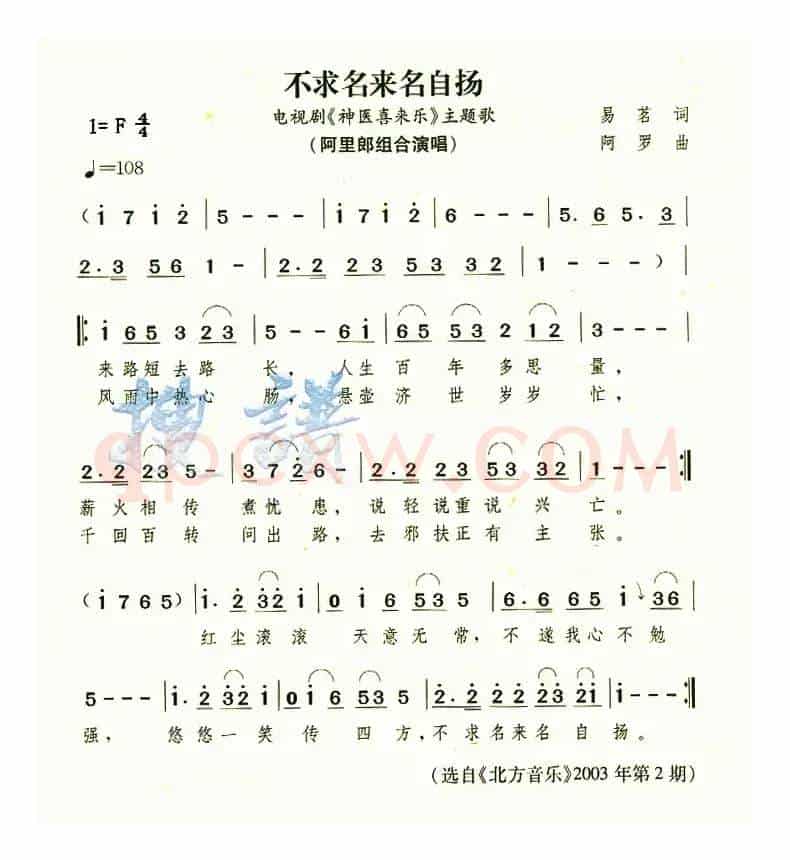 不求名来名自扬
电视剧《神医喜来乐》主题歌
(阿里郎组合演唱)
1=F 4/4
♩=108
易茗 词
阿罗 曲
(i 7 i 2̇ | 5 - - - | i 7 i 2̇ | 6 - - - | 5. 6 5. 3 |
2. 3 5 6 1 - | 2. 2 2 3 5 3 3 2 | 1 - - - ) |
‖: i 6 5 3 2 3 | 5 - - 6 i | 6 5 5 3 2 1 2 | 3 - - - |
来路短去路 长, 人生百年多思 量,
风雨中热心 肠, 悬壶济世岁岁 忙,
博谱
qpcxw.COM
2. 2 2 3 5 - | 3 7 2̇ 6 - | 2. 2 2 3 5 3 3 2 | 1 - - - :‖
薪火相传 煮忧患, 说轻说重说兴 亡。
千回百转 问出路, 去邪扶正有主 张。
(i 7 6 5) | i. 2̇ 3̇ 2̇ i | 0 i 6 5 3 5 | 6. 6 6 5 i 3 6 |
红尘滚滚 天意无常, 不遂我心不勉
5 - - - | i. 2̇ 3̇ 2̇ i | 0 i 6 5 3 5 | 2̇. 2̇ 2̇ 2̇ 2̇ 3̇ 2̇ i | i - - - :‖
强, 悠悠一笑传四方,不求名来名自扬。
(选自《北方音乐》2003年第2期)